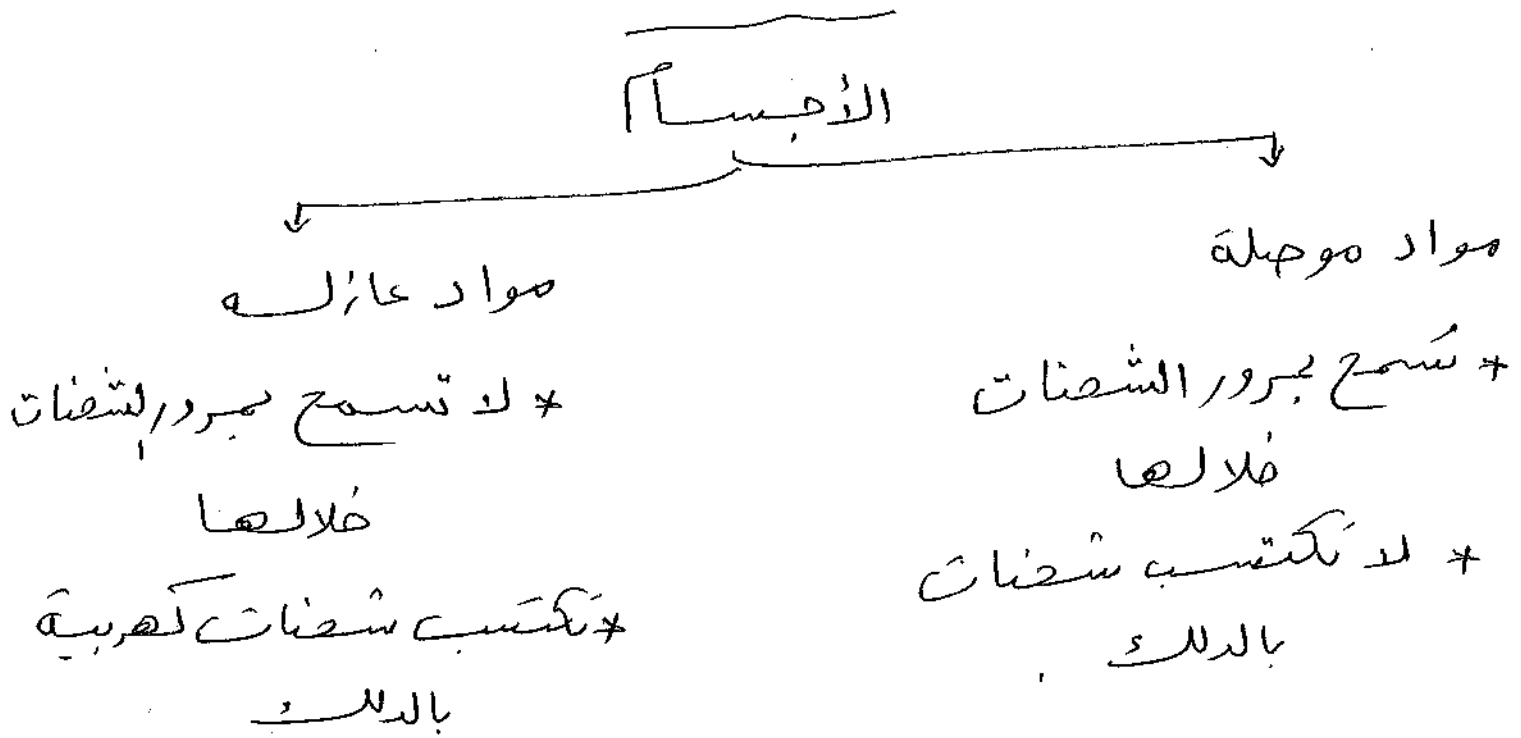 الأجسام
مواد موصلة
* تسمح بمرور الشحنات
خلالها
* لا تكتسب شحنات
بالدلك
مواد عازله
* لا تسمح بمرور الشحنات
خلالها
* تكتسب شحنات كهربية
بالدلك